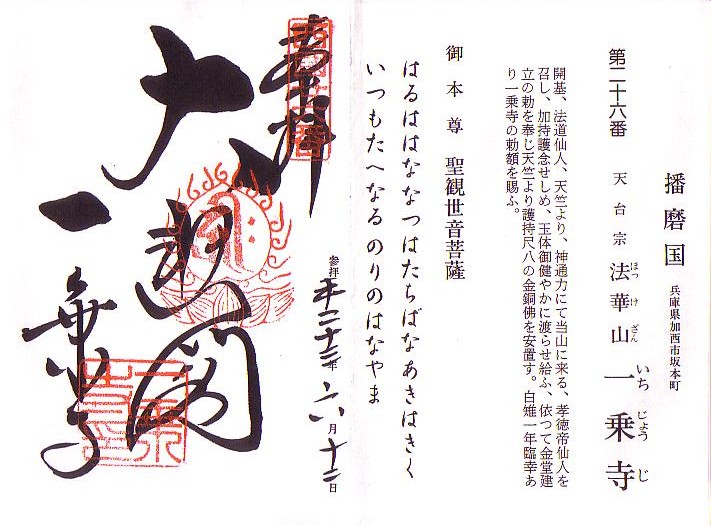 播磨国 兵庫県加西市坂本町
第二十六番 天台宗 法華山 一乗寺
ほっけざん いちじょうじ
開基、法道仙人、天竺より、神通力にて当山に来る、孝徳帝仙人を
召し、加持護念せしめ、玉体御健やかに渡らせ給ふ、依つて金堂建
立の勅を奉じ天竺より護持尺八の金銅佛を安置す。白雉一年臨幸あ
り一乗寺の勅額を賜ふ。
御本尊 聖観世音菩薩
はるははななつはたちばなあきはきく
いつもたへなるのりのはなやま
奉拝
参拝 平二十二年六月十二日
大悲閣
一乗寺